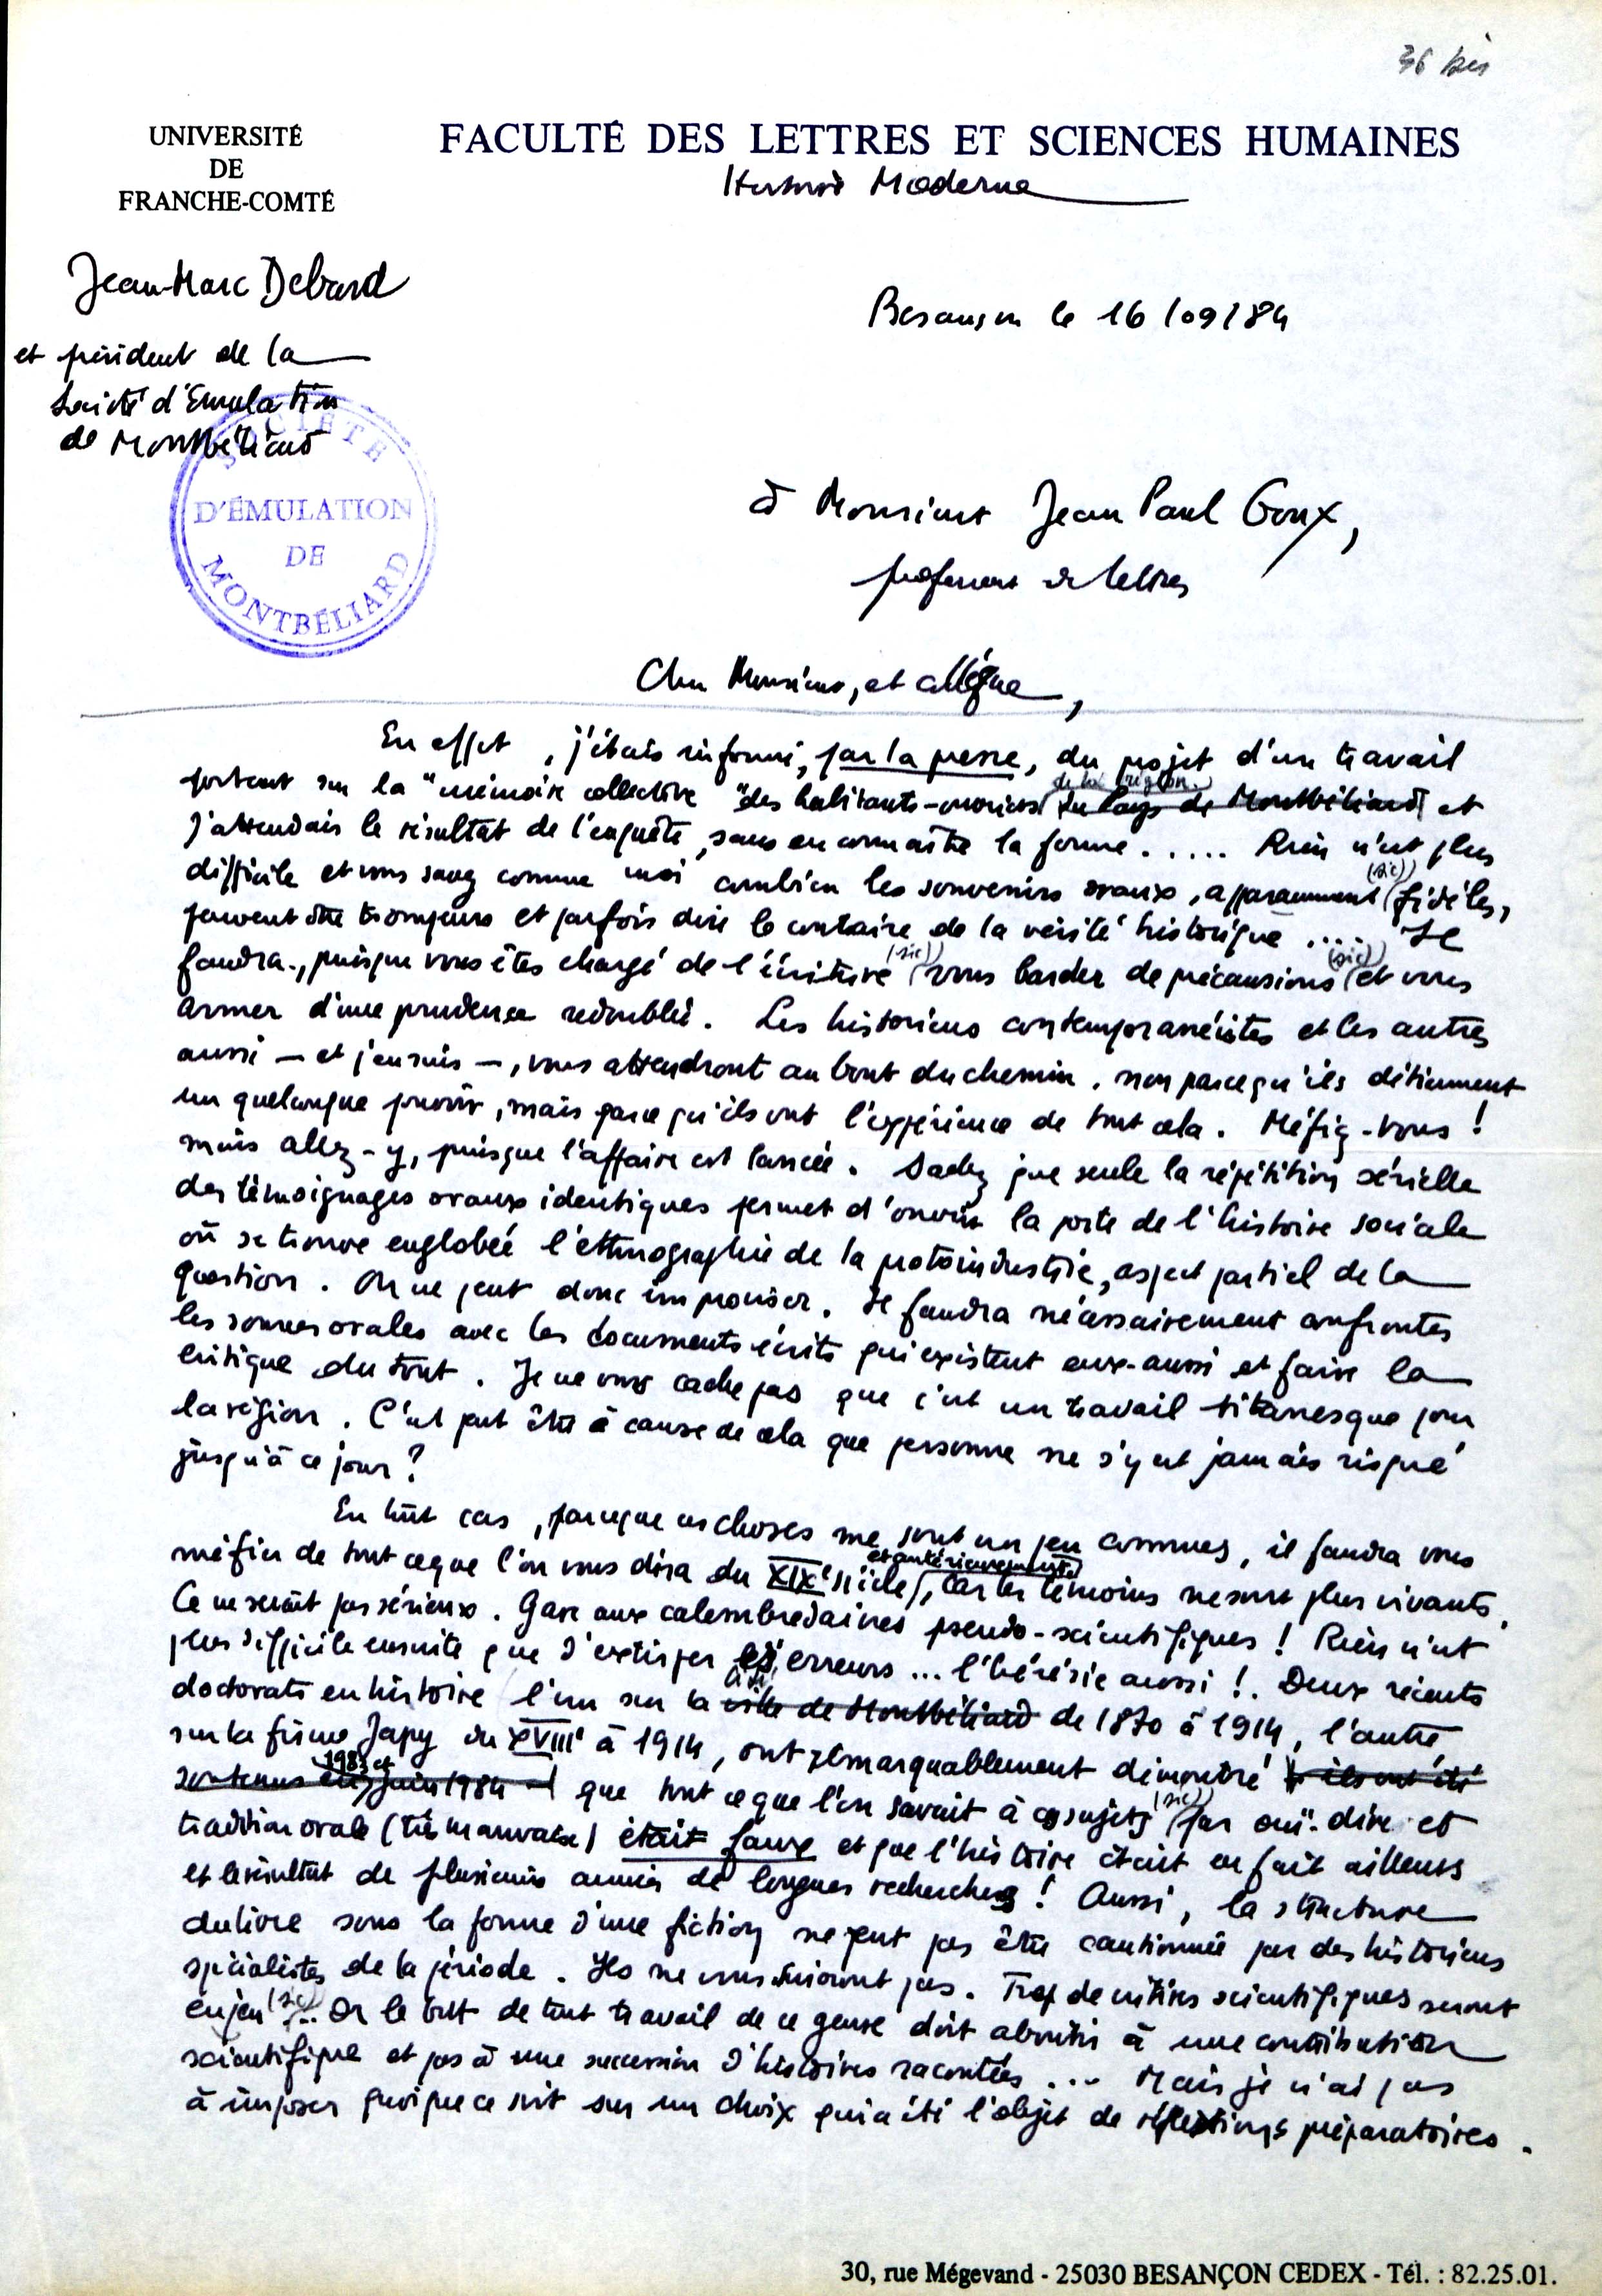 36 bis
UNIVERSITÉ
DE
FRANCHE-COMTÉ
FACULTÉ DES LETTRES ET SCIENCES HUMAINES
Histoire Moderne
Jean-Marc Debard
et président de la
Société d'Emulation
de Montbéliard
SOCIÉTÉ
D'ÉMULATION
DE
MONTBÉLIARD
Besançon le 16/09/84
à Monsieur Jean Paul Goux,
professeur de lettres
Cher Monsieur, et collègue,
En effet, j'étais informé, par la presse, du projet d'un travail
de la région
portant sur la "mémoire collective" des habitants-ouvriers du Pays de Montbéliard et
j'attendais le résultat de l'enquête, sans en connaître la forme..... Rien n'est plus
difficile et vous savez comme moi combien les souvenirs oraux, apparemment (sic) fidèles,
peuvent être trompeurs et parfois dire le contraire de la vérité historique .... Il
faudra, puisque vous êtes chargé de l'écriture (sic) vous barder de précausions (sic) et vous
armer d'une prudence redoublée. Les historiens contemporanéistes et les autres
aussi — et j'en suis —, vous attendront au bout du chemin, non parce qu'ils détiennent
un quelconque pouvoir, mais parce qu'ils ont l'expérience de tout cela. Méfiez-vous !
mais allez-y, puisque l'affaire est lancée. Sachez que seule la répétition sérielle
des témoignages oraux identiques permet d'ouvrir la porte de l'histoire sociale
où se trouve englobée l'ethnographie de la protoindustrie, aspect partiel de la
question. On ne peut donc improviser. Il faudra nécessairement confronter
les sources orales avec les documents écrits qui existent eux-aussi et faire la
critique du tout. Je ne vous cache pas que c'est un travail titanesque pour
la région. C'est peut être à cause de cela que personne ne s'y est jamais risqué
jusqu'à ce jour ?
En tout cas, parceque ces choses me sont un peu connues, il faudra vous
et antérieurement
méfier de tout ce que l'on vous dira du XIXe siècle, car les témoins ne sont plus vivants.
Ce ne serait pas sérieux. Gare aux calembredaines pseudo-scientifiques ! Rien n'est
plus difficile ensuite que d'extirper les erreurs ... l'hérésie aussi !. Deux récents
doctorats en histoire l'un sur la ville de Montbéliard de 1870 à 1914, l'autre
sur la firme Japy du XVIIIe à 1914, ont remarquablement démontré ils ont été
1983 et
soutenus en juin 1984 que tout ce que l'on savait à ces sujets (sic) par ouï-dire et
tradition orale (très mauvaise) était faux et que l'histoire était en fait ailleurs
et le résultat de plusieurs années de longues recherches ! Aussi, la structure
du livre sous la forme d'une fiction ne peut pas être cautionnée par des historiens
spécialistes de la période. Ils ne vous suivront pas. Trop de critères scientifiques seront
en jeu (sic)... Or le but de tout travail de ce genre doit aboutir à une contribution
scientifique et pas à une succession d'histoires racontées ... Mais je n'ai pas
à imposer quoique ce soit sur un choix qui a été l'objet de réflexions préparatoires.
30, rue Mégevand - 25030 BESANÇON CEDEX - Tél. : 82.25.01.